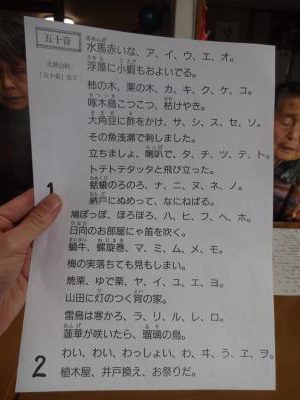 五十音
北原白秋
「五十音」全文
水馬赤いな、ア、イ、ウ、エ、オ。
浮藻に小蝦もおよいでる。
柿の木、栗の木、カ、キ、ク、ケ、コ。
啄木鳥こつこつ、枯けやき。
大角豆に酢をかけ、サ、シ、ス、セ、ソ。
その魚浅瀬で刺しました。
立ちましょ、喇叭で、タ、チ、ツ、テ、ト。
トテトテタッタと飛び立った。
蛞蝓のろのろ、ナ、ニ、ヌ、ネ、ノ。
納戸にぬめって、なにねばる。
1
鳩ぽっぽ、ほろほろ、ハ、ヒ、フ、ヘ、ホ。
日向のお部屋にゃ笛を吹く。
蝸牛、螺旋巻、マ、ミ、ム、メ、モ。
梅の実落ちても見もしまい。
焼栗、ゆで栗、ヤ、イ、ユ、エ、ヨ。
山田に灯のつく宵の家。
雷鳥は寒かろ、ラ、リ、ル、レ、ロ。
蓮華が咲いたら、瑠璃の鳥。
2
わい、わい、わっしょい、わ、ヰ、う、ヱ、ヲ。
植木屋、井戸換え、お祭りだ。